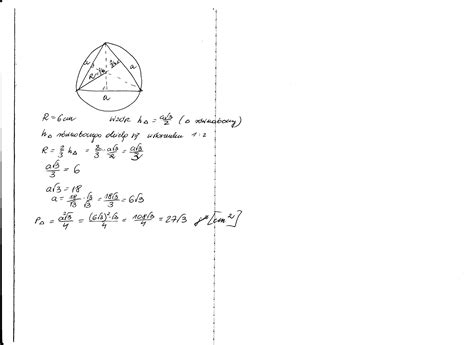 a
a
R
a
R = 6 cm wzór h△ = a√3/2 (△ równoboczny)
h△ równobocznego dzielą się w stosunku 1:2
R = 2/3 h△ = 2/3 · a√3/2 = a√3/3
a√3/3 = 6
a√3 = 18
a = 18/√3 · √3/√3 = 18√3/3 = 6√3
P△ = a²√3/4 = (6√3)²·√3/4 = 108√3/4 = 27√3 [cm²]